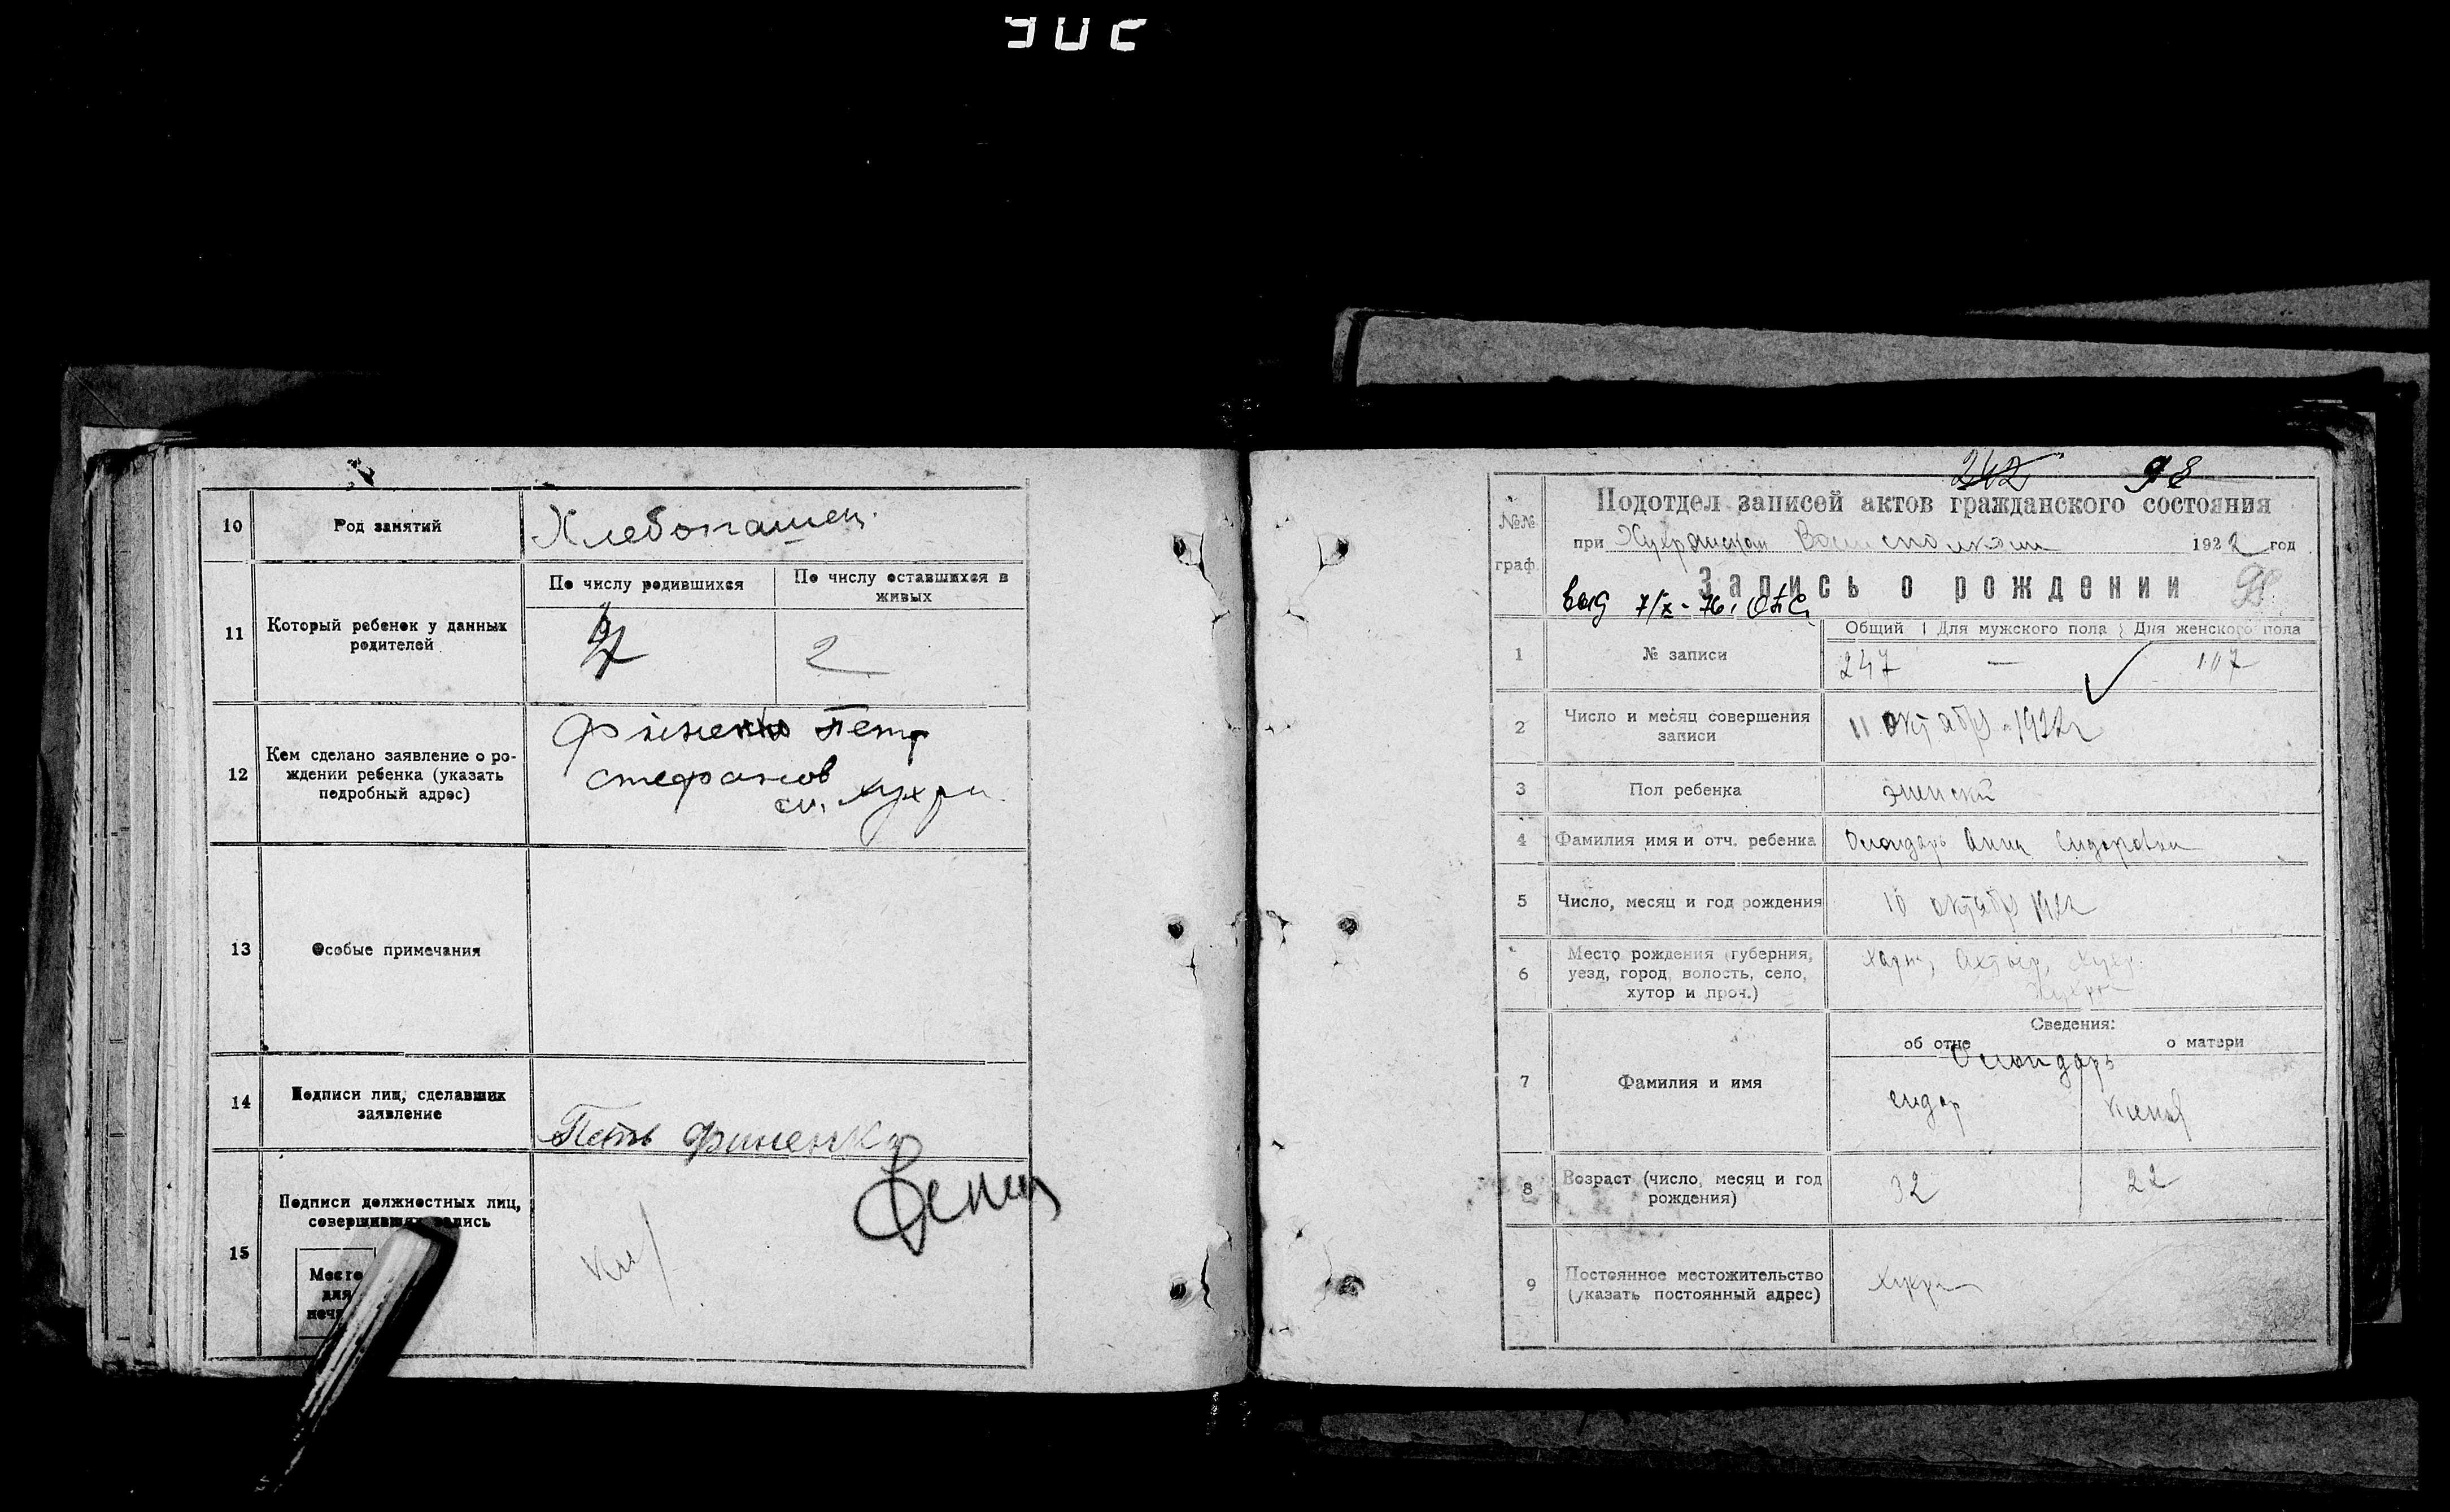 902
10
Род занятий
Хлебопашец
11
Который ребенок у данных
родителей
По числу родившихся
По числу оставшихся в
живых
2
12
Кем сделано заявление о ро-
ждении ребенка (указать
подробный адрес)
Финенко Петр
Стефанов
сл. Хухри
13
Особые примечания
14
Подписи лиц, сделавших
заявление
Петь Финенко
15
Подписи должностных лиц,
совершивших запись
Место
для
печ
242 98
№№
граф.
Подотдел записей актов гражданского состояния
при Волисполкоме 1922 год
Запись о рождении 98
выд 7/X-76г
Общий Для мужского пола Для женского пола
1
№ записи
247 — 107
2
Число и месяц совершения
записи
11 октября 1922 г
3
Пол ребенка
женский
4
Фамилия имя и отч. ребенка
Анна Сидоровна
5
Число, месяц и год рождения
10 октября 1922
6
Место рождения (губерния,
уезд, город, волость, село,
хутор и проч.)
Харк, Ахтыр, Хухр.
Хухри
Сведения:
об отце о матери
7
Фамилия и имя
Сидор
8
Возраст (число, месяц и год
рождения)
32 22
9
Постоянное местожительство
(указать постоянный адрес)
Хухри